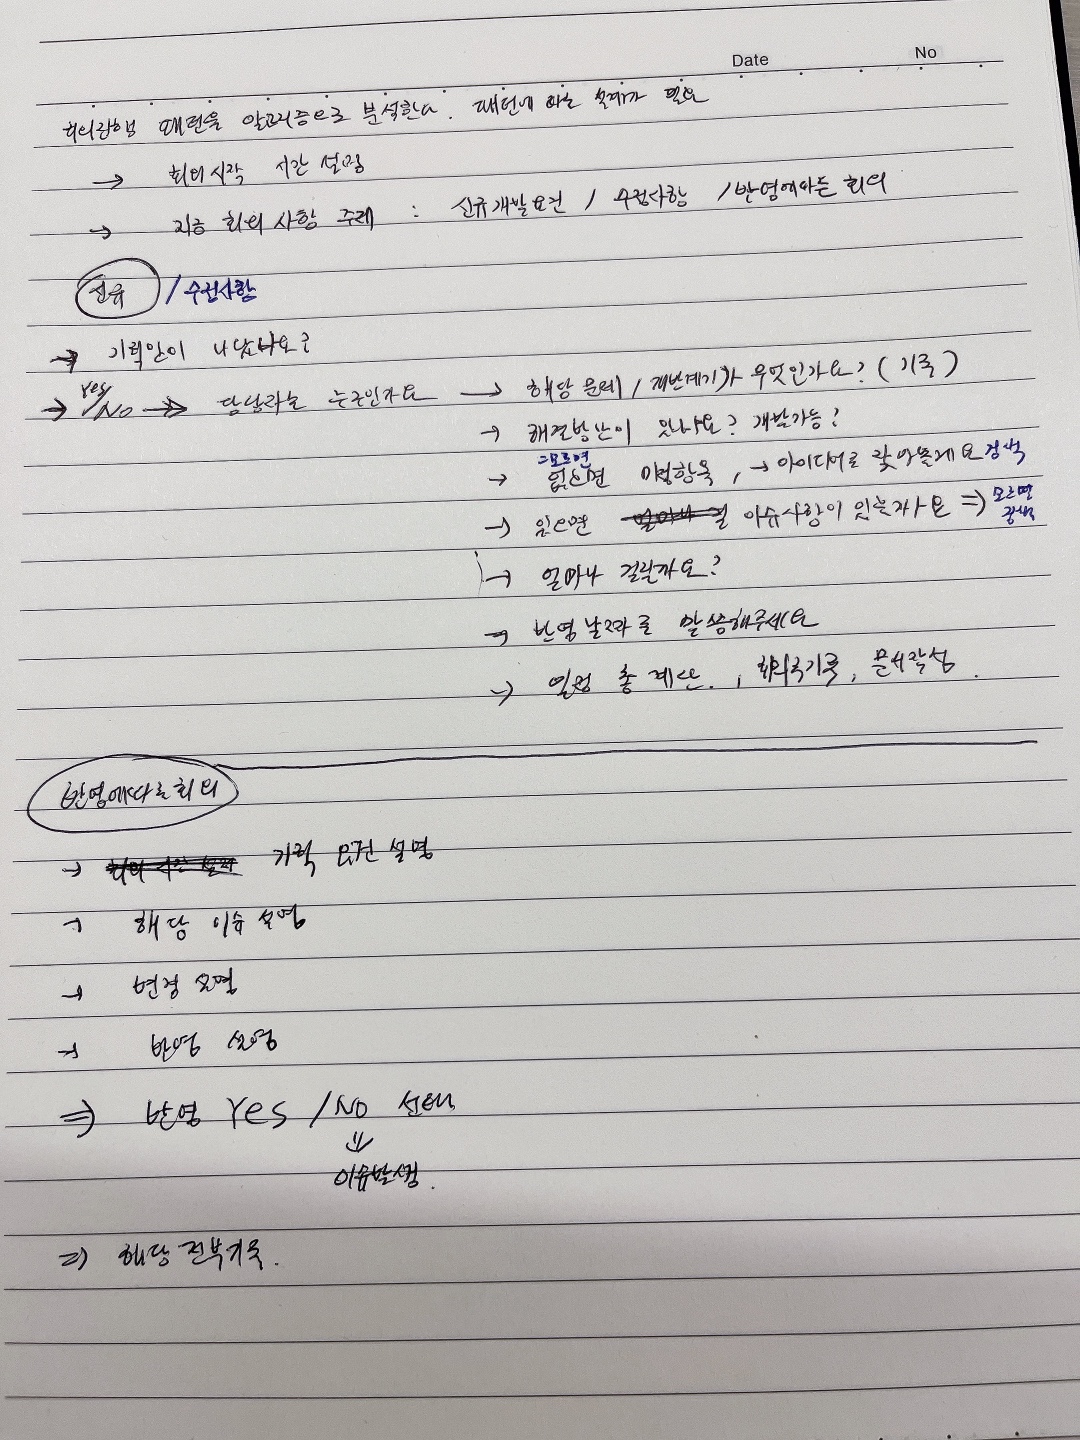 Date No
회의진행 패턴을 알고리즘으로 분석한다. 패턴에 따른 설계가 필요
→ 회의 시작 시간 설정
→ 지금 회의 사항 주제 : 신규개발요건 / 수정사항 / 반영에따른 회의
신규 / 수정사항
→ 기획안이 나왔나요?
→ Yes/No → 담당자는 누구인가요 → 해당 문제/개발계기가 무엇인가요? (기록)
→ 해결방안이 있나요? 개발가능?
=모르면
→ 없으면 미정항목, → 아이디어로 찾아볼게요 검색
→ 있으면 이슈사항이 있을까요 ⇒ 모르면 검색
→ 얼마나 걸릴까요?
→ 반영날짜를 말씀해주세요
→ 일정 총 계산. , 회의록기록, 문서작성.
반영에따른회의
→ 기획 요건 설명
→ 해당 이슈 설명
→ 변경 설명
→ 반영 설명
⇒ 반영 Yes / No 선택
⇓
이슈발생.
⇒ 해당 전부기록.